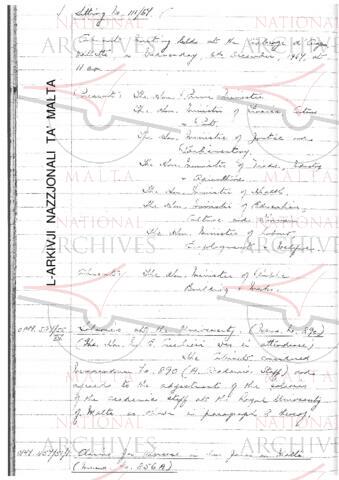 Sitting No. 111/67
Cabinet Meeting held at the Auberge
Valletta on Wednesday, 6th December, 1967, at
11 am
Present: The Hon. Prime Minister
The Hon. Minister of Finance, Customs
& Port
The Hon. Minister of Justice and
Parliamentary
The Hon. Minister of Trade, Industry
& Agriculture
The Hon. Minister of Health
The Hon. Minister of Education,
Culture and Tourism
The Hon. Minister of Labour,
Employment & Welfare
Absent: The Hon. Minister of Public
Building & Works.
Salaries at the University. (Memo. No. 890)
(The Hon. was in attendance)
The Cabinet considered
Memorandum No. 890 (Academic Staff) and
agreed to the adjustment of the salaries
of the academic staff at the Royal University
of Malta as shown in paragraph 3 thereof.
in Malta
(Memo No. 856A)
L-ARKIVJI NAZZJONALI TA' MALTA
NATIONAL
ARCHIVES
MALTA
NATIONAL
ARCHIVES
MALTA
NATIONAL
ARCHIVES